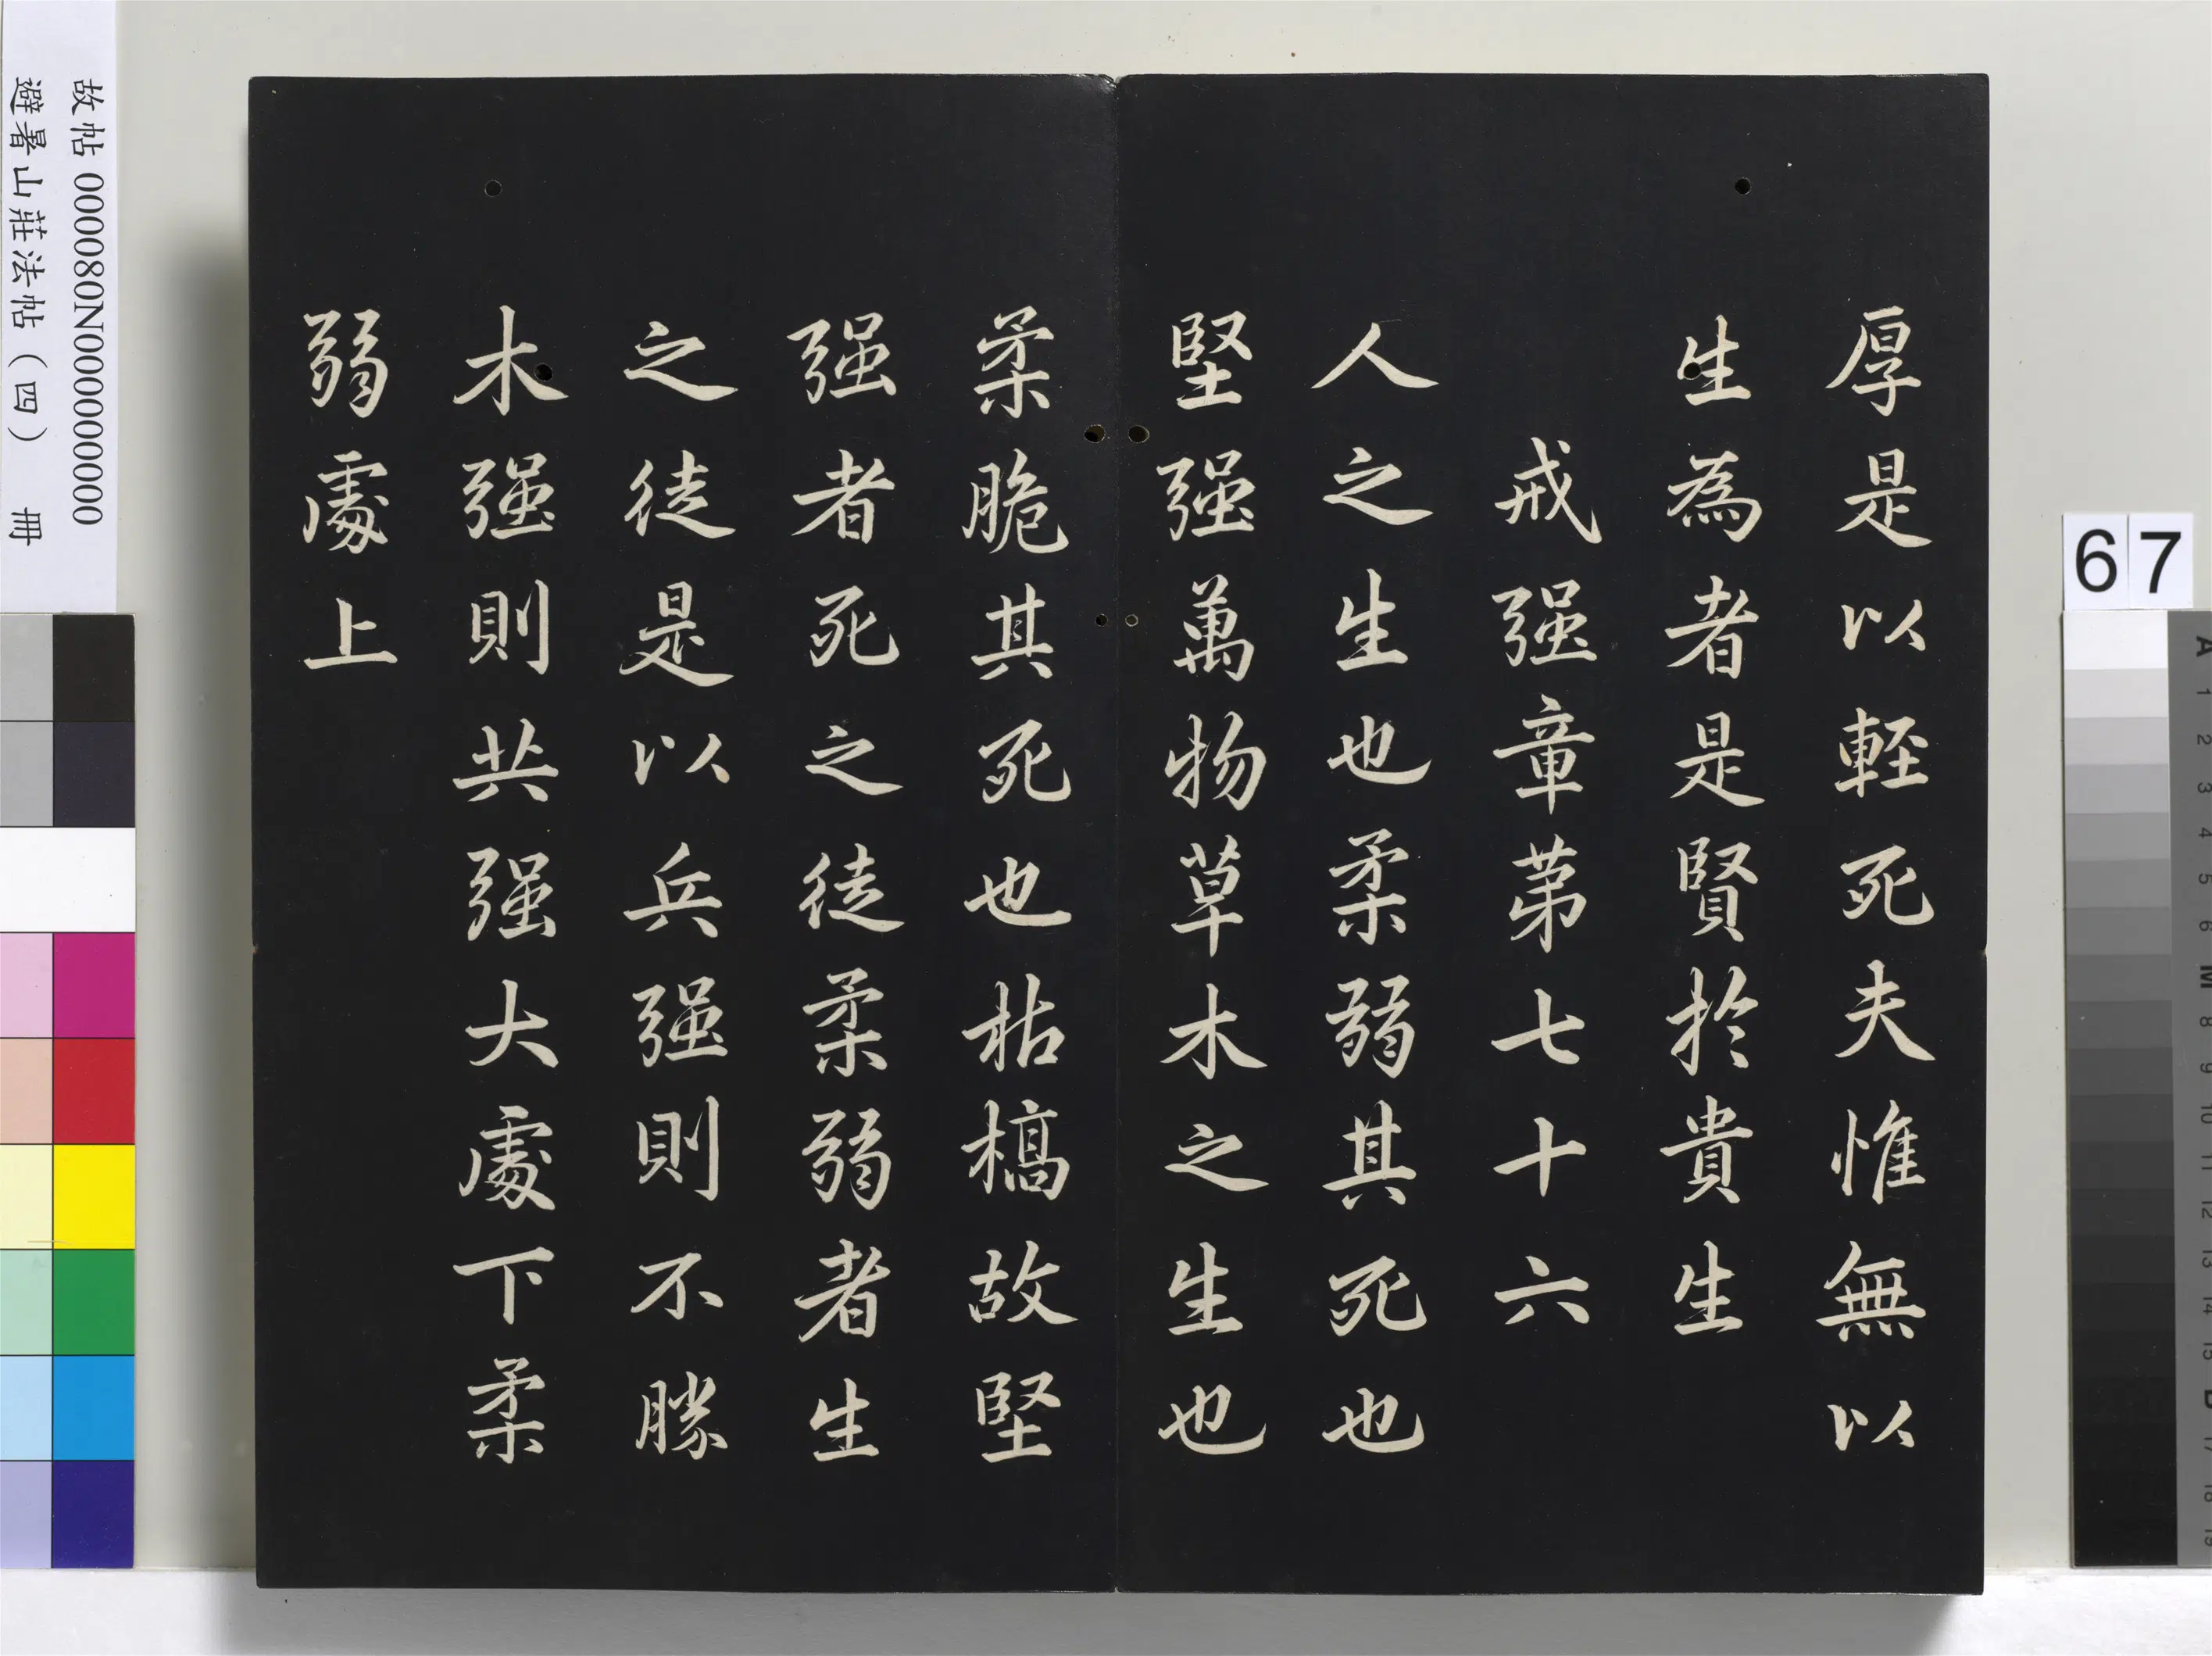 厚是以輕死夫惟無以
生為者是賢於貴生
戒强章苐七十六
人之生也柔弱其死也
堅强萬物草木之生也
柔脆其死也枯槁故堅
强者死之徒柔弱者生
之徒是以兵强則不勝
木强則共强大處下柔
弱處上
故帖 000080N000000000
避暑山莊法帖（四） 冊
67
A
1
2
3
4
5
6
M
8
9
10
11
12
13
14
15
B
17
18
19